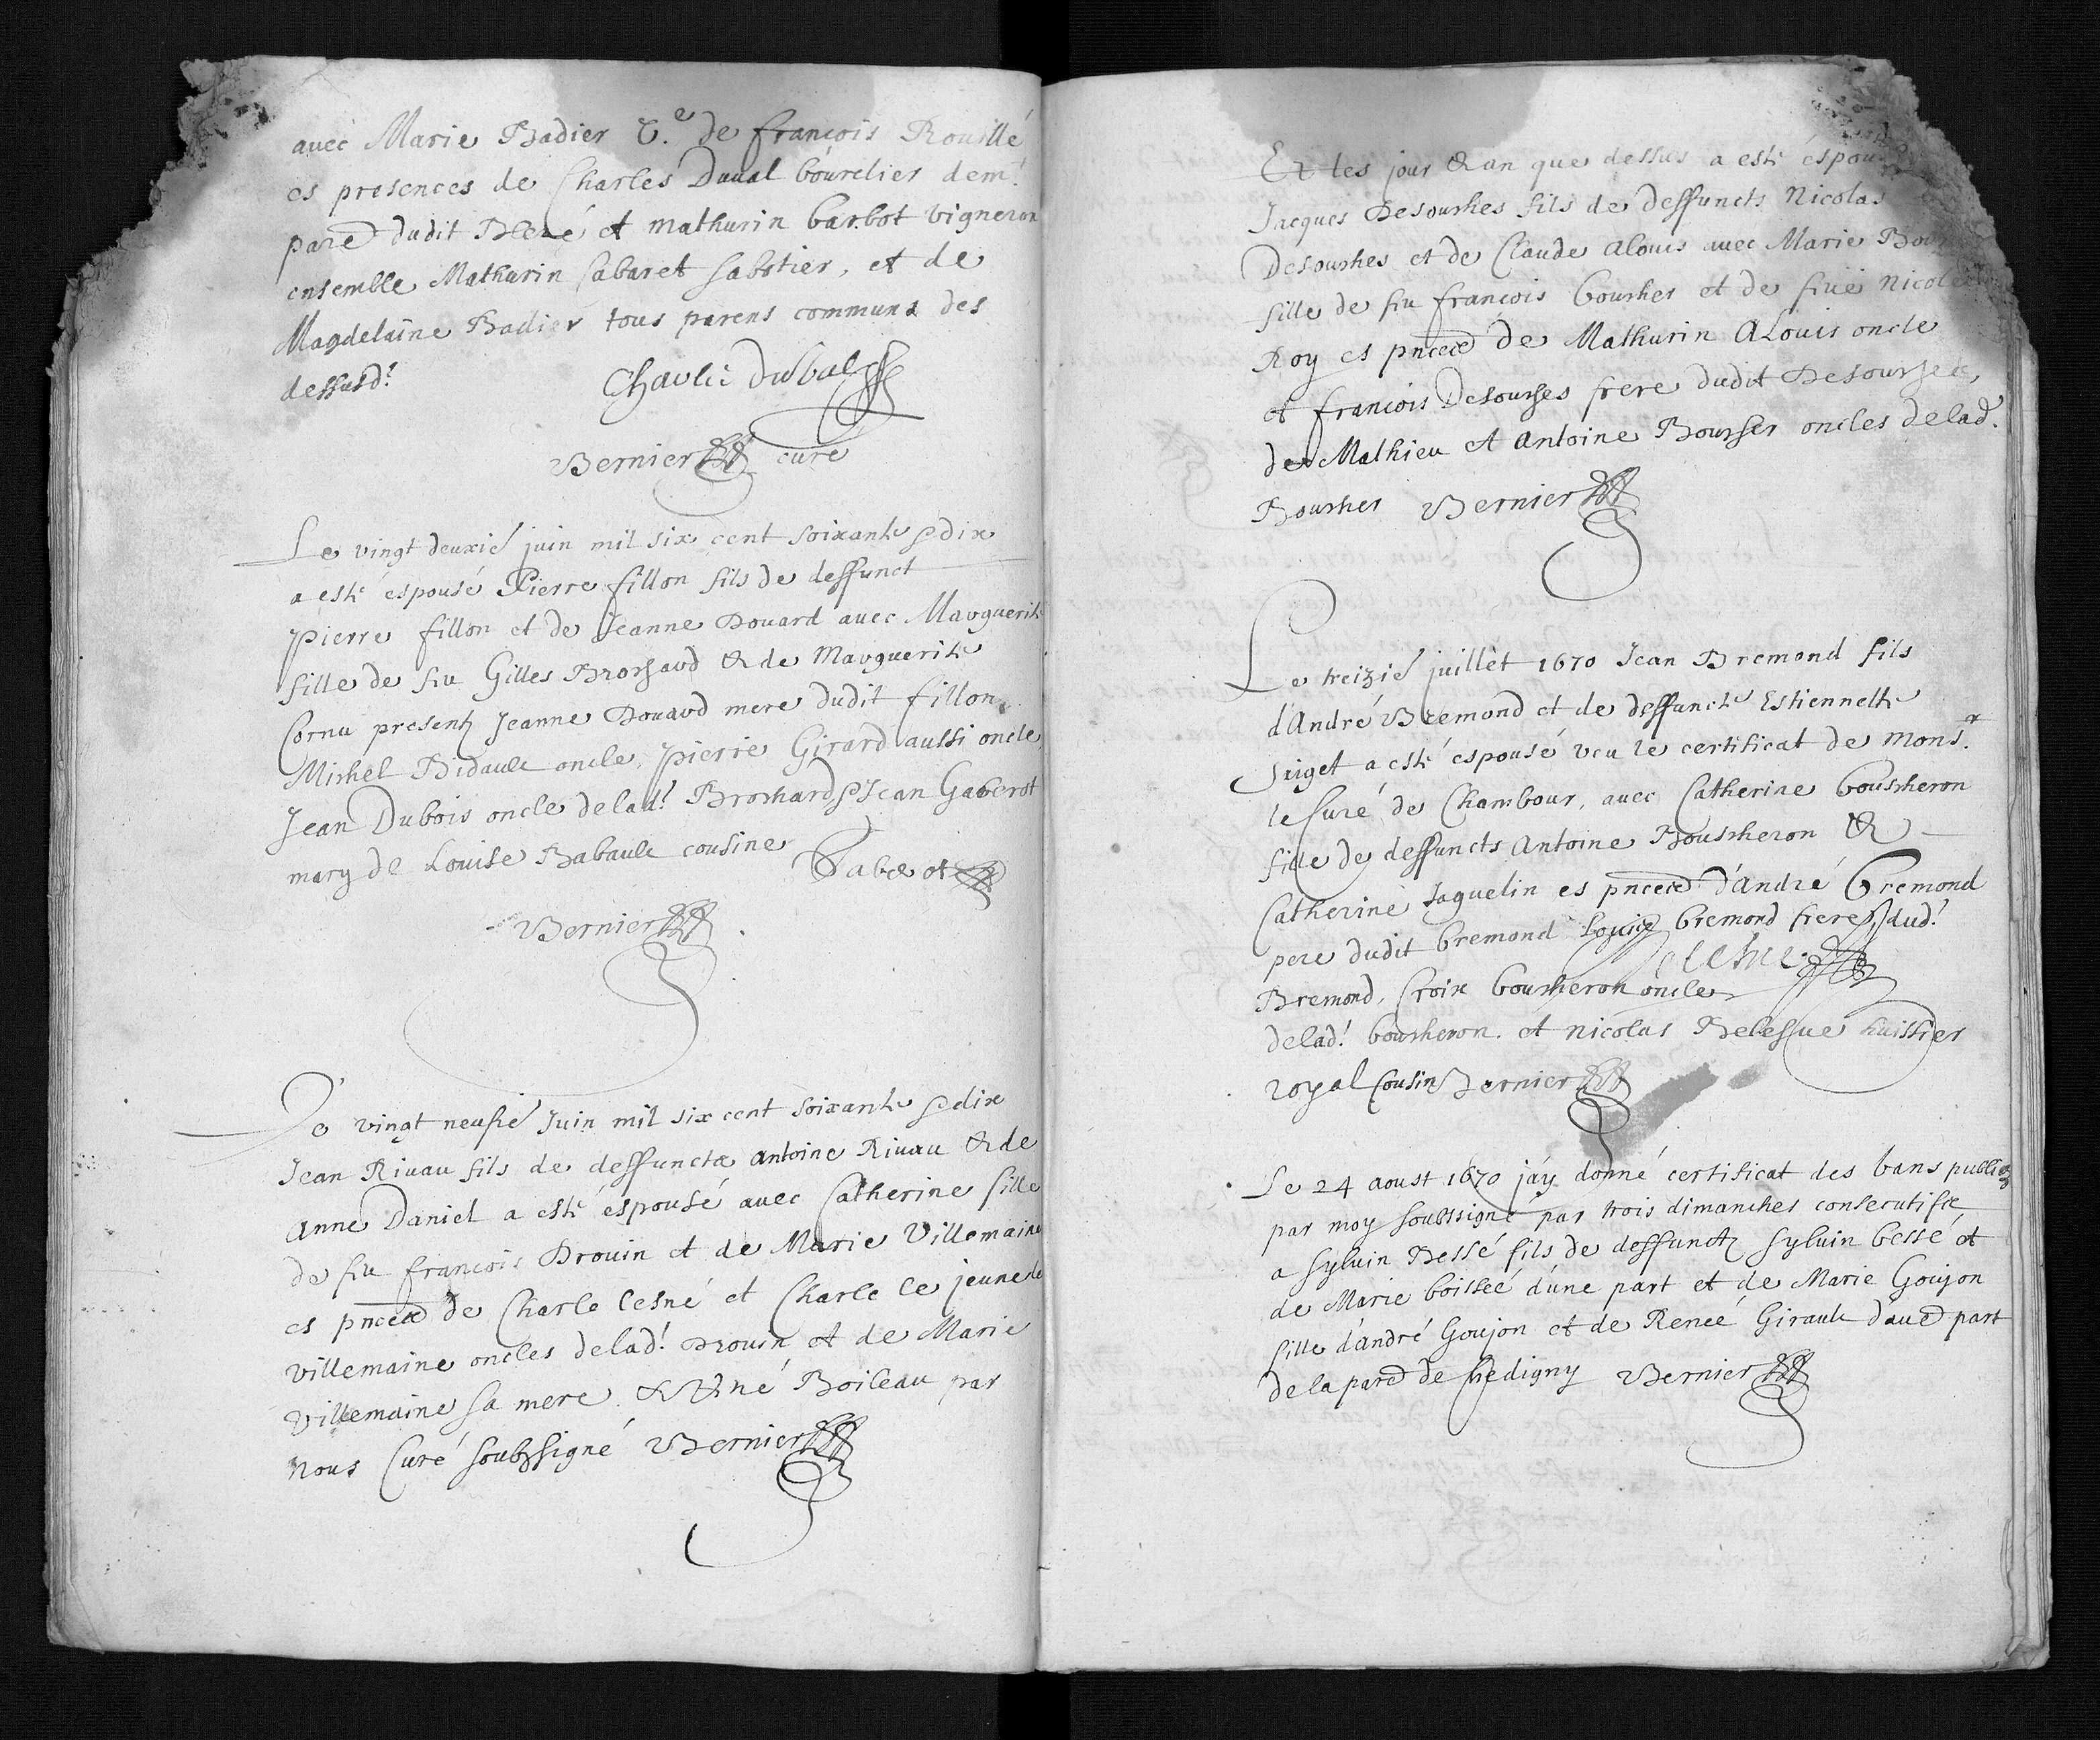 avec Marie Badier V.e de françois Rouillé
es presences de Charles Duval bourelier dem.t
par.e dudit Bleré et mathurin barbot vigneron
ensemble Mathurin Cabaret sabotier, et de
Magdelaine Badier tous parens communs des
dessusd.t Charles Duval
Bernier curé
Le vingt deuxie juin mil six cent soixante & dix
a esté espousé Pierre fillon fils de deffunct
Pierre fillon et de Jeanne Douard avec Marguerite
fille de feu Gilles Brochard & de Marguerite
Cornu presentz Jeanne Douard mere dudit fillon,
Michel Bidault oncle, Pierre Girard aussi oncle,
Jean Dubois oncle delad.t Brochard & Jean Gaberot
mary de Louise Babault cousine Gaberot
Bernier
Le vingt neufie Juin mil six cent soixante & dix
Jean Rivau fils de deffuncts antoine Rivau & de
anne Daniel a esté espousé avec Catherine fille
de feu françois Drouin et de Marie Villemaine
es pnces de Charle lesné et Charle le jeune de
villemaine oncles delad.t Drouin et de Marie
villemaine sa mere & René Boileau par
nous Curé soubzsigné Bernier
Et les jour & an que dessus a esté espou
Jacques Desourches fils de deffuncts Nicolas
Desourches et de Claude alouis avec Marie
fille de feu françois bourches et de feue
Roy es pnces de Mathurin ALouis oncle
et françois Desourches frere dudit Desourches,
de Mathieu et antoine Bourches oncles delad.
Bourches Bernier
Le treizie juillet 1670 Jean Bremond fils
d'André Bremond et de deffuncte Estiennette
Jriget a esté espousé veu le certificat de Mons.r
le Curé de Chambour, avec Catherine bourcheron
fille de deffuncts Antoine Bourcheron &
Catherine Jaquelin es pnces d'André Bremond
pere dudit bremond Louis bremond frere dud.t
Bremond, Croix bourcheron oncle
delad.t bourcheron. et nicolas Belesme huissier
royal Cousin Bernier
Le 24 aoust 1670 j'ay donné certificat des bans publiez
par moy soubssigné par trois dimanches consecutifs
a Sylvin Bessé fils de deffunctz Sylvin bessé et
de Marie boissée d'une part et de Marie Goujon
fille d'andré Goujon et de Renée Girault d'au.e part
de la par.e de Chedigny Bernier